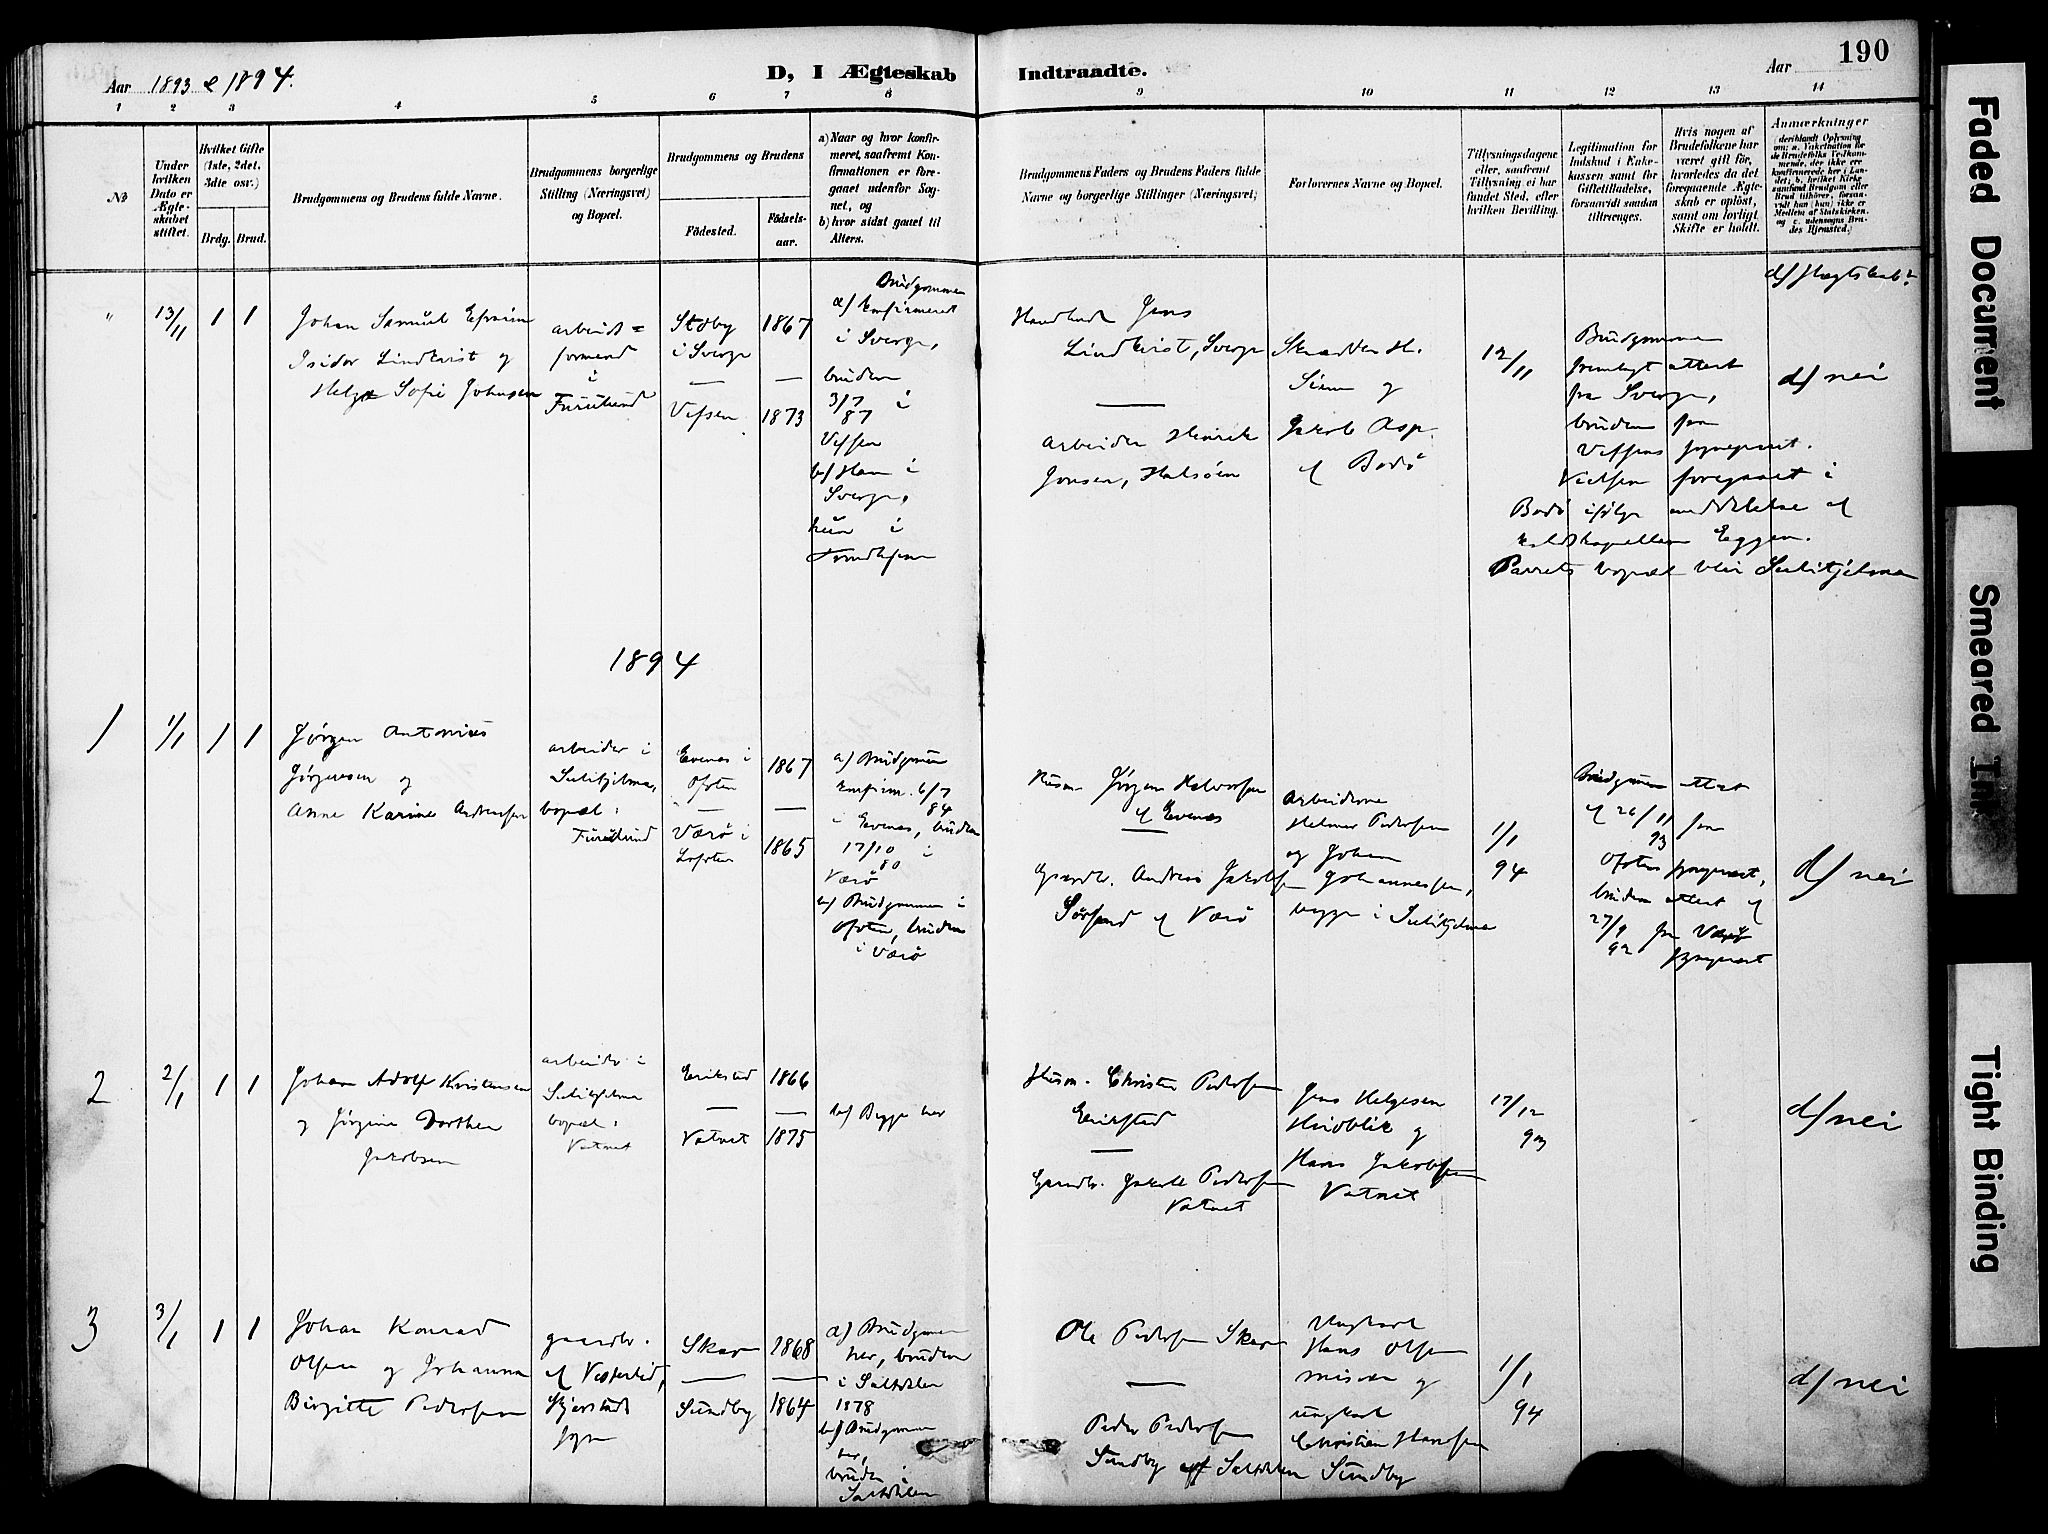 190
Aar 1893 & 1894.
D, I Ægteskab Indtraadte.
Aar
1 2 3 4 5 6 7 8 9 10 11 12 13 14
№
Under hvilken Dato er Ægteskabet stiftet.
Hvilket Gifte (1ste, 2det, 3dte osv.)
Brdg. Brud.
Brudgommens og Brudens fulde Navne.
Brudgommens borgerlige Stilling (Næringsvei) og Bopæl.
Brudgommens og Brudens
Fødested.
Fødselsaar.
a) Naar og hvor konfirmeret, saafremt Konfirmationen er foregaaet udenfor Sognet, og
b) hvor sidst gaaet til Alters.
Brudgommens Faders og Brudens Faders fulde Navne og borgerlige Stillinger (Næringsvei)
Forlovernes Navne og Bopæl.
Tillysningsdagene eller, saafremt Tillysning ei har fundet Sted, efter hvilken Bevilling.
Legitimation for Indskud i Enkekassen samt for Giftetilladelse, forsaavidt saadan tiltrænges.
Hvis nogen af Brudefolkene har været gift før, hvorledes da det foregaaende Ægteskab er opløst, samt om lovligt Skifte er holdt.
Anmærkninger
d/ Slægtskab?
" 13/11 1 1
Johan Samuel Efraim
Isidor Lindkvist og
Helga Sofie Johnsen
arbeids=
formand
i
Furulund
i Sverge
—
Vefsen
1867
—
1873
Brudgommen
a/ konfirmeret
i Sverge,
bruden
3/7 87 i
Vefsen
b/ Ham i
Sverge,
hun i
Trondhjem
Jens
Lindkvist, Sverge
—
arbeider Henrik
Jonsen, Halsøen
og
Jakob Asp
af Bodø
12/11
Brudgommen
fremlagt attest
fra Sverge,
bruden fra
Vefsens sognepræst.
Vielsen foregaaet i
Bodø ifølge meddelelse af
Eggen.
Parrets bopæl blir Sulitjelma
d/ nei
1894
1 1/1 1 1
Jørgen Antonius
Jørgensen og
Anne Karine Andreassen
arbeider i
Sulitjelma,
bopæl:
Furulund
Evenes i
Ofoten
—
Værø i
Lofoten
1867
—
1865
a/ Brudgommen
konfirm. 6/7 84
i Evenes, bruden
17/10 80 i
Værø
b/ Brudgommen i
Ofoten, bruden
i Værø
Husm. Jørgen Halvorsen
af Evenes
—
Gaardbr. Andreas Jakobsen
Sørland af Værø
Arbeiderne
Helmer Pedersen
og Johan
Johannessen,
begge i Sulitjelma
1/1 94
Brudgommen attest
af 26/11 93 fra
Ofotens sognepræst,
bruden attest af
27/9 92 fra Værø
sognepræst
d/ nei
2 2/1 1 1
Johan Adolf Kristensen
og Jørgine Dorthea
Jakobsen
arbeider i
Sulitjelma
bopæl:
Vatnet
Erikstad
—
Vatnet
1866
—
1875
b/ Begge her
Husm. Christen Pedersen
Erikstad
—
Gaardbr. Jakob Pedersen
Vatnet
Jens Helgesen
og
Hans Jakobsen
Vatnet
17/12 93
d/ nei
3 3/1 1 1
Johan Konrad
Olsen og Johanna
Birgitte Pedersen
gaardbr.
af Vesterlid,
Skjerstads
sogn
Skar
—
Sundby
1868
—
1864
a/ Brudgommen
her, bruden
i Saltdalen
1878
b/ Brudgommen
her,
bruden i
Saltdalen
Ole Pedersen Skar
—
Peder Pedersen
Sundby af Saltdalen
Ungkarl
Hans Olsen
Misvær og
ungkarl
Christian Hansen
Sundby
1/1 94
d/ nei
Faded Document
Smeared Ink
Tight Binding